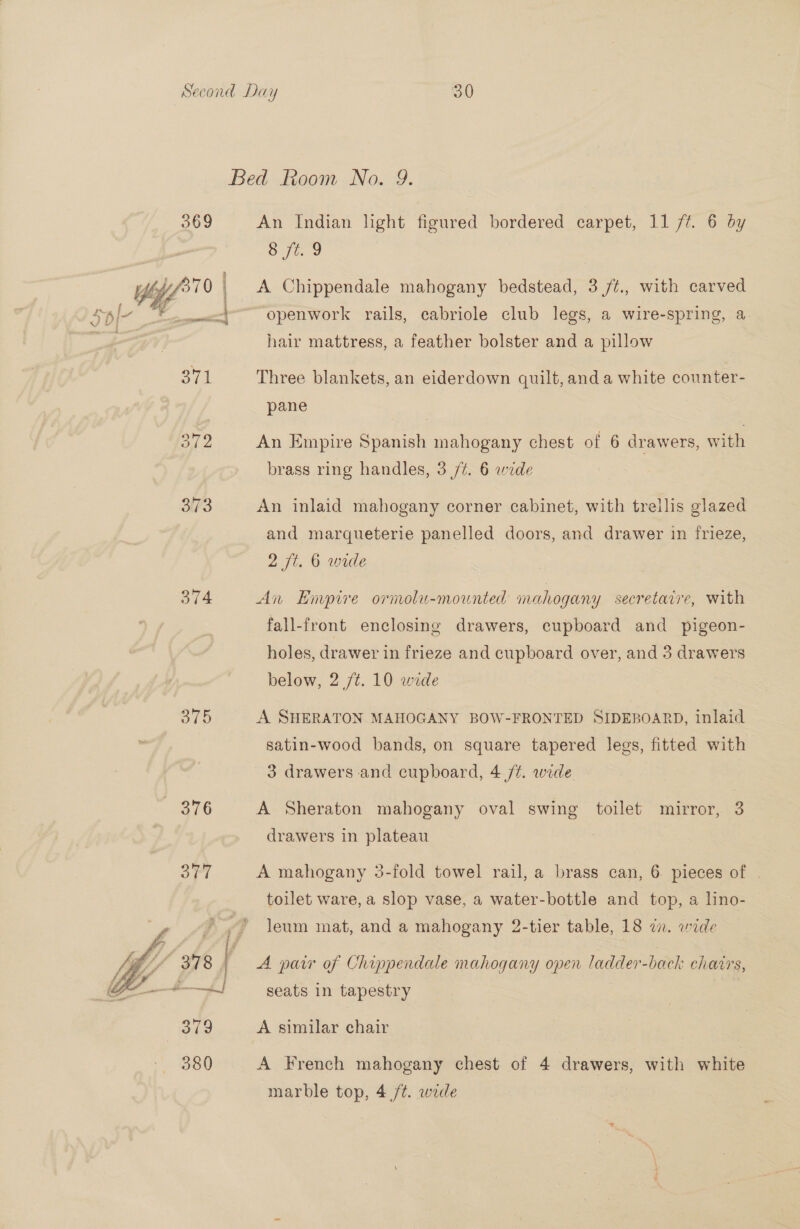 Second Day 30
Bed Room No. 9.
369 An Indian light figured bordered carpet, 11 ft. 6 by
8 ft. 9
370 A Chippendale mahogany bedstead, 3 ft., with carved
openwork rails, cabriole club legs, a wire-spring, a
hair mattress, a feather bolster and a pillow
371 Three blankets, an eiderdown quilt, and a white counter-
pane
372 An Empire Spanish mahogany chest of 6 drawers, with
brass ring handles, 3 ft. 6 wide
373 An inlaid mahogany corner cabinet, with trellis glazed
and marqueterie panelled doors, and drawer in frieze,
2 ft. 6 wide
374 An Empire ormolu-mounted mahogany secretaire, with
fall-front enclosing drawers, cupboard and pigeon-
holes, drawer in frieze and cupboard over, and 3 drawers
below, 2 ft. 10 wide
375 A SHERATON MAHOGANY BOW-FRONTED SIDEBOARD, inlaid
satin-wood bands, on square tapered legs, fitted with
3 drawers and cupboard, 4 ft. wide
376 A Sheraton mahogany oval swing toilet mirror, 3
drawers in plateau
377 A mahogany 3-fold towel rail, a brass can, 6 pieces of
toilet ware, a slop vase, a water-bottle and top, a lino-
leum mat, and a mahogany 2-tier table, 18 in. wide
378 A pair of Chippendale mahogany open ladder-back chairs,
seats in tapestry
379 A similar chair
380 A French mahogany chest of 4 drawers, with white
marble top, 4 ft. wide